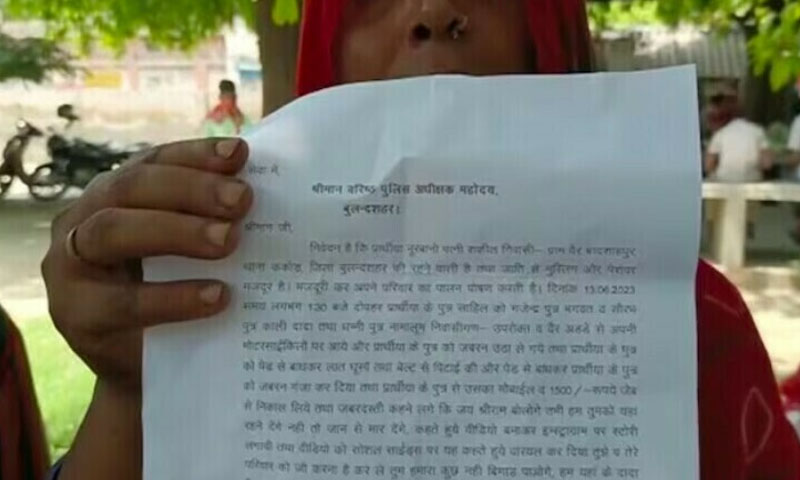 सेवा में,
श्रीमान वरिष्ठ पुलिस अधीक्षक महोदय,
बुलन्दशहर।
श्रीमान जी,
निवेदन है कि प्रार्थीया नूरबानो पत्नी शकील निवासी– ग्राम वैर बादशाहपुर
थाना ककोड, जिला बुलन्दशहर की रहने वाली है तथा जाति से मुस्लिम और पेशेवर
मजदूर है। मजदूरी कर अपने परिवार का पालन पोषण करती है। दिनांक 13.06.2023
समय लगभग 1:30 बजे दोपहर प्रार्थीया के पुत्र साहिल को गजेन्द्र पुत्र भगवत व सौरभ
पुत्र काली दादा तथा धन्नी पुत्र नामालूम निवासीगण– उपरोक्त व वैर अडडे से अपनी
मोटरसाईकिलों पर आये और प्रार्थीया के पुत्र को जबरन उठा ले गये तथा प्रार्थीया के पुत्र
को पेड से बाधकर लात घूसों तथा बेल्ट से पिटाई की और पेड से बाधकर प्रार्थीया के पुत्र
को जबरन गंजा कर दिया तथा प्रार्थीया के पुत्र से उसका मोबाईल व 1500/–रूपये जेब
से निकाल लिये तथा जबरदस्ती कहने लगे कि जय श्रीराम बोलोगे तभी हम तुमको यहा
रहने देंगे नही तो जान से मार देंगे, कहते हुये वीडियो बनाकर इन्स्ट्राग्राम पर स्टोरी
लगायी तथा वीडियो को सोशल साईड्स पर यह कहते हुये वायरल कर दिया तुझे व तेरे
परिवार को जो करना है कर ले तुम हमारा कुछ नही बिगाड पाओगे, हम यहां के दादा